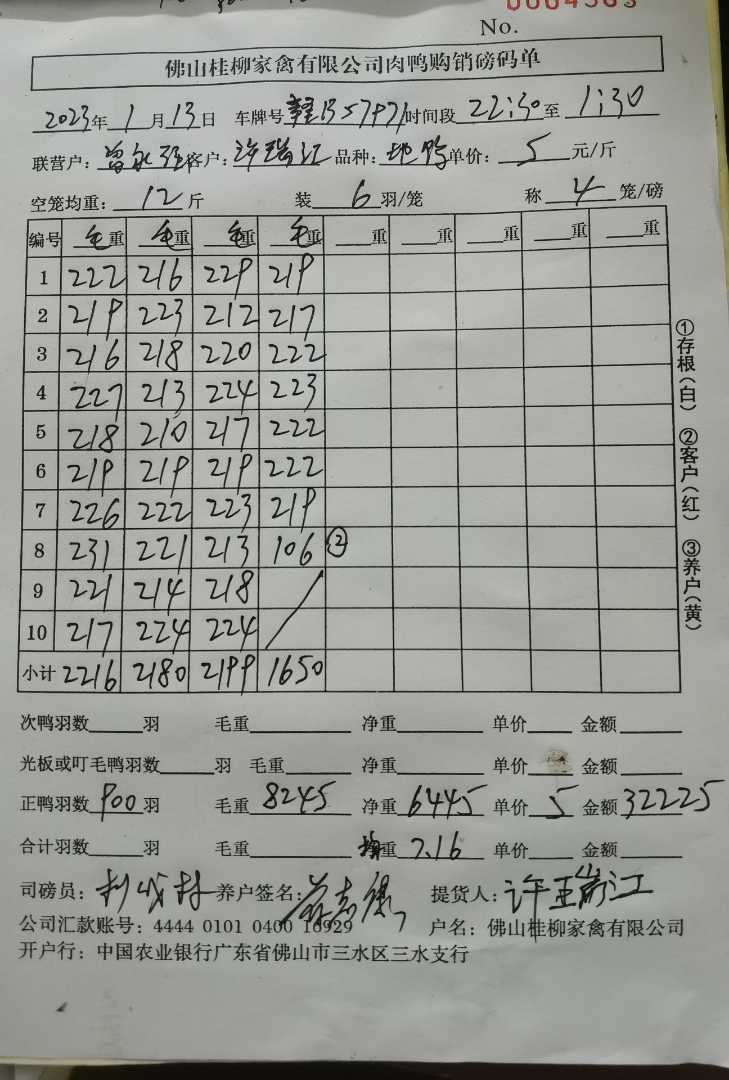 No.
佛山桂柳家禽有限公司肉鸭购销磅码单
2023年 1 月 13 日 车牌号 时间段 22:30 至 1:30
联营户: 客户: 许瑞江 品种: 地鸭 单价: 5 元/斤
空笼均重: 12 斤 装 6 羽/笼 称 4 笼/磅
编号 毛重 毛重 毛重 毛重 重 重 重 重 重
1 222 216 229 219
2 219 223 212 217
3 216 218 220 222
4 227 213 224 223
5 218 210 217 222
6 219 219 219 222
7 226 222 223 219
8 231 221 213 106 ②
9 221 214 218
10 217 224 224
小计 2216 2180 2199 1650
①存根(白) ②客户(红) ③养户(黄)
次鸭羽数 羽 毛重 净重 单价 金额
光板或叮毛鸭羽数 羽 毛重 净重 单价 金额
正鸭羽数 900 羽 毛重 8245 净重 6445 单价 5 金额 32225
合计羽数 羽 毛重 均重 7.16 单价 金额
司磅员: 养户签名: 提货人: 许瑞江
公司汇款账号: 4444 0101 0400 16929 户名: 佛山桂柳家禽有限公司
开户行: 中国农业银行广东省佛山市三水区三水支行